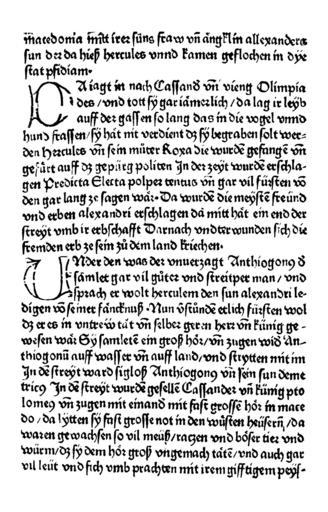 macedonia mitt irer süns fraw vñ ãngklin allexanders
sun der da hieß hercules vnnd kamen geflochen in dye
stat pfidiam.
DA iagt in nach Cassand vñ vieng Olimpia
des/vnd tott sy gar iämerlich/da lag ir leyb
auff der gassen so lang das in die vogel vnnd
hund frassen/sy hät nit verdient dz sy begraben solt wer-
den Hercules vñ sein müter Roxa die wurdẽ gefangẽ vñ
gefürt auff dz gepürg politen In der zeyt wurdẽ erschla-
gen Predicta Electa polper tentus vñ gar vil fürsten võ
den gar lang ze sagen wär. Da wurdẽ die meystẽ freünd
vnd erben alexandri erschlagen dã mitt hät ein end der
streyt vmb ir erbschafft Darnach vnderwunden sich die
fremden erb ze sein zů dem land kriechen.
UNder den was der vnuerzagt Anthiogonꝰ d
samlet gar vil güter vnd streitper man/vnd
sprach er wolt herculem den sun alexandri le-
digen võ seiner fäncknuß. Nun vstündẽ etlich fürsten wol
dz er es in vntrew tät võ selber gerñ herr võ künig ge-
wesen wär Sy samletẽ ein groß hör/vñ zugen wid An-
thiogonũ auff wasser vñ auff land/vnd strytten mit im
In dẽ streyt ward sigloß Anthiogonꝰ vñ sein sun deme
tricꝰ In dẽ streyt wurdẽ gesellẽ Cassander vñ künig pto
lomeꝰ vñ zugen mit einand mit fast grossẽ hör in mace
do/da lytten sy fast grosse not in den wüsten heüserñ/da
waren gewachsen so vil meüß/ratzen vnd böser tier vnd
würm/dz sy dem hör groß vngemach tätẽ/vnd auch gar
vil leüt vnd sich vmb prachten mit irem gifftigem peyß-